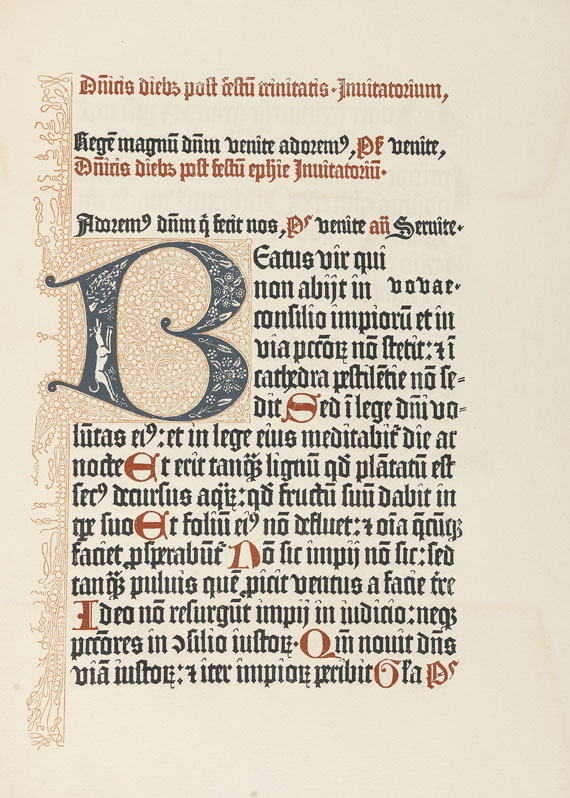 Dn̄icis diebꝫ post festū trinitatis · Inuitatorium,
Regē magnū dn̄m venite adoremꝰ, Ps̄ venite,
Dn̄icis diebꝫ post festū ephie Inuitatoriū·
Adoremꝰ dn̄m q̄ fecit nos, Pˢ venite an̄ Seruite·
Beatus vir qui
non abijt in vovae·
consilio impiorū et in
via pccōꝝ nō stetit: ⁊ ī
cathedra pestilētie nō se⸗
dit Sed ī lege dn̄i vo⸗
lūtas eiꝰ: et in lege eius meditabit᷑ die ac
nocte Et erit tanqꝫ lignū qd̄ plātatū est
secꝰ decursus aqꝝ: qd̄ fructū suū dabit in
tp̄e suo Et foliū eiꝰ nō defluet: ⁊ oīa q̄cūqꝫ
faciet ꝓsperabūt᷑ Nō sic impij nō sic: sed
tanqꝫ puluis quē ꝓicit ventus a facie tr̄e
Ideo nō resurgūt impij in iudicio: neqꝫ
pctōres in ↄsilio iustoꝝ· Qm̄ nouit dn̄s
viā iustoꝝ: ⁊ iter impioꝝ peribit Gl̄a Pˢ